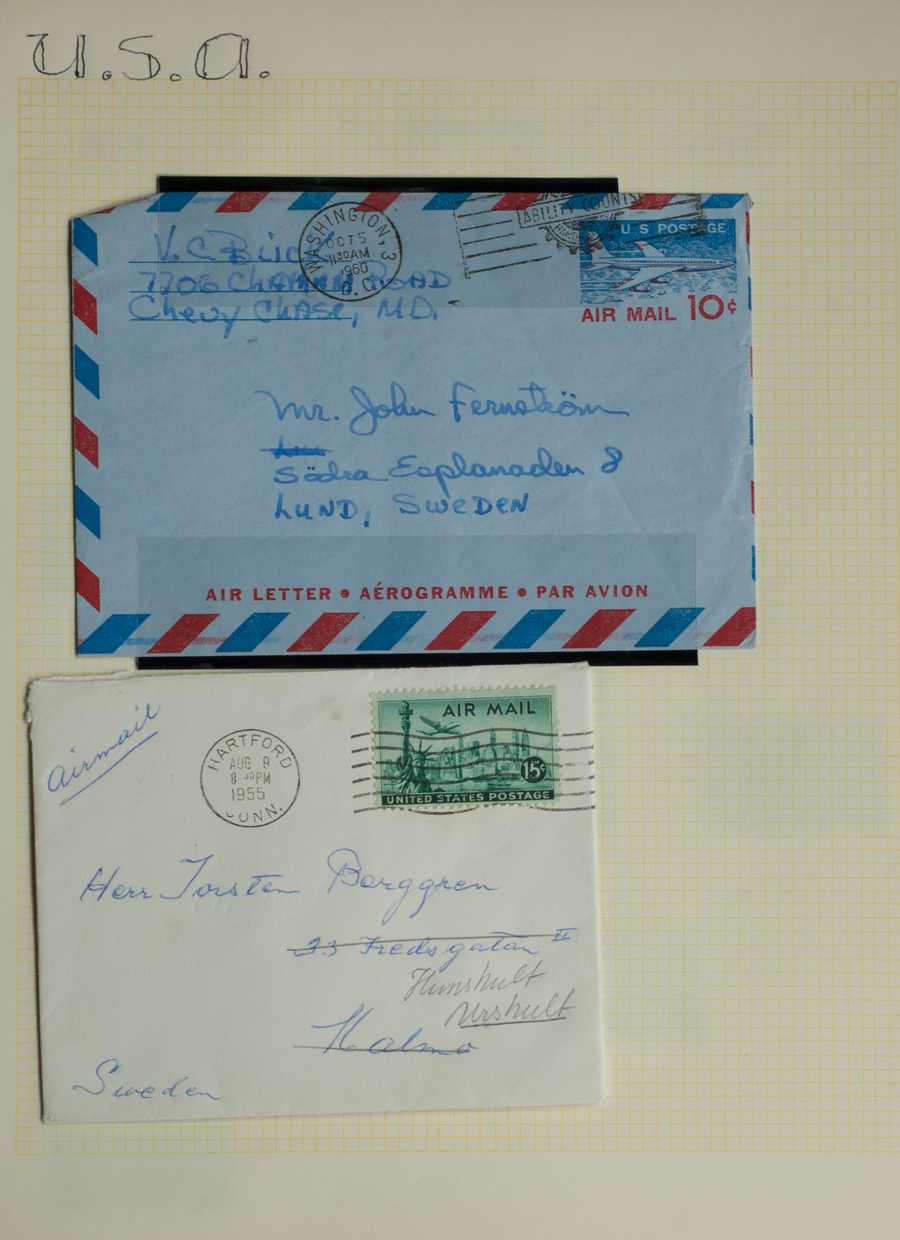 U.S.A.
WASHINGTON, 3
OCT 5
11 30 AM
1960
D.C.
ABILITY COUNTS
U S POSTAGE
AIR MAIL 10¢
V.C.
7706 ROAD
Chevy Chase, MD.
Mr. John Fernström
Södra Esplanaden 8
LUND, SWEDEN
AIR LETTER • AÉROGRAMME • PAR AVION
airmail
HARTFORD
AUG 9
8 30 PM
1955
CONN.
AIR MAIL
15¢
UNITED STATES POSTAGE
Herr Torsten Berggren
33 Fredsgatan II
Hunshult
Urshult
Malmo
Sweden